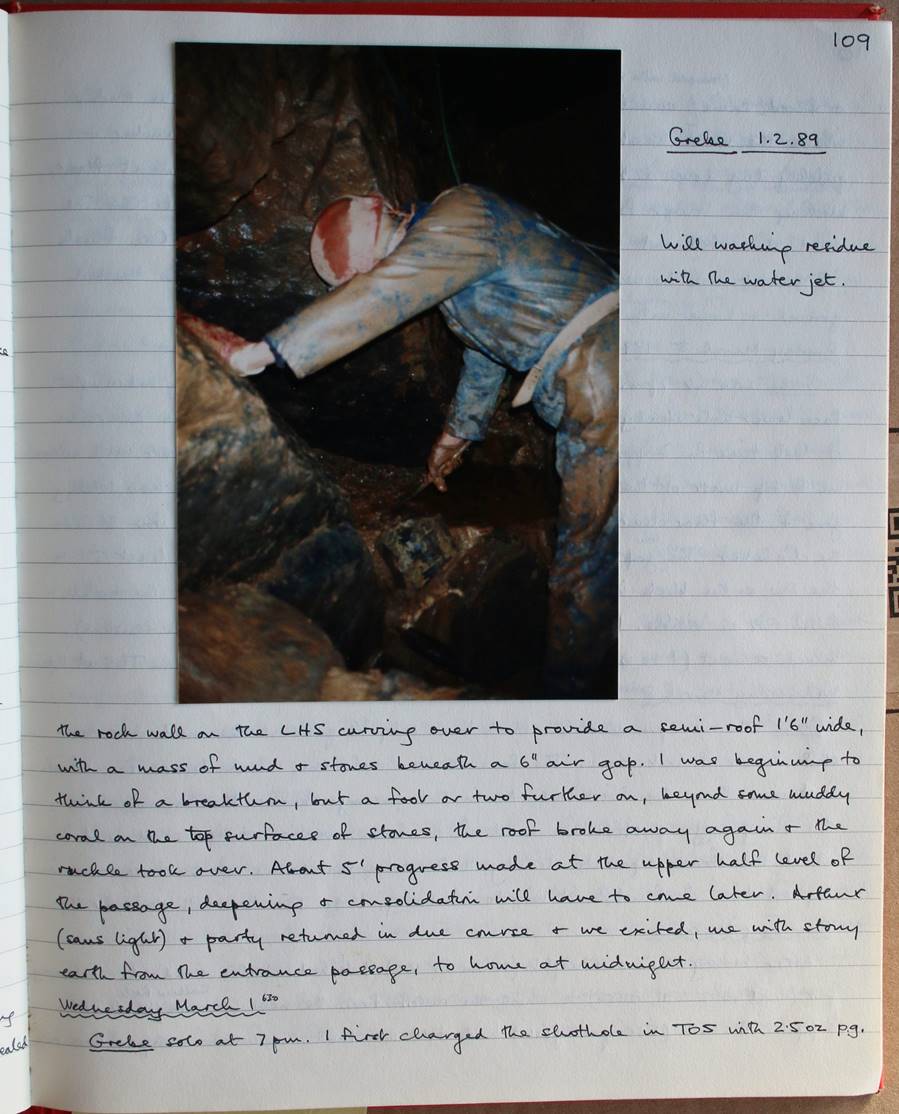 109
Grebe 1.2.89
Will washing residue
with the water jet.
the rock wall on the LHS curving over to provide a semi-roof 1'6" wide,
with a mass of mud & stones beneath a 6" air gap. I was beginning to
think of a breakthru, but a foot or two further on, beyond some muddy
coral on the top surfaces of stones, the roof broke away again & the
ruckle took over. About 5' progress made at the upper half level of
the passage, deepening & consolidation will have to come later. Arthur
(sans light) & party returned in due course & we exited, me with stony
earth from the entrance passage, to home at midnight.
Wednesday March 1 630
Grebe solo at 7pm. I first charged the shothole in TOS with 2.5oz p.g.
ealed